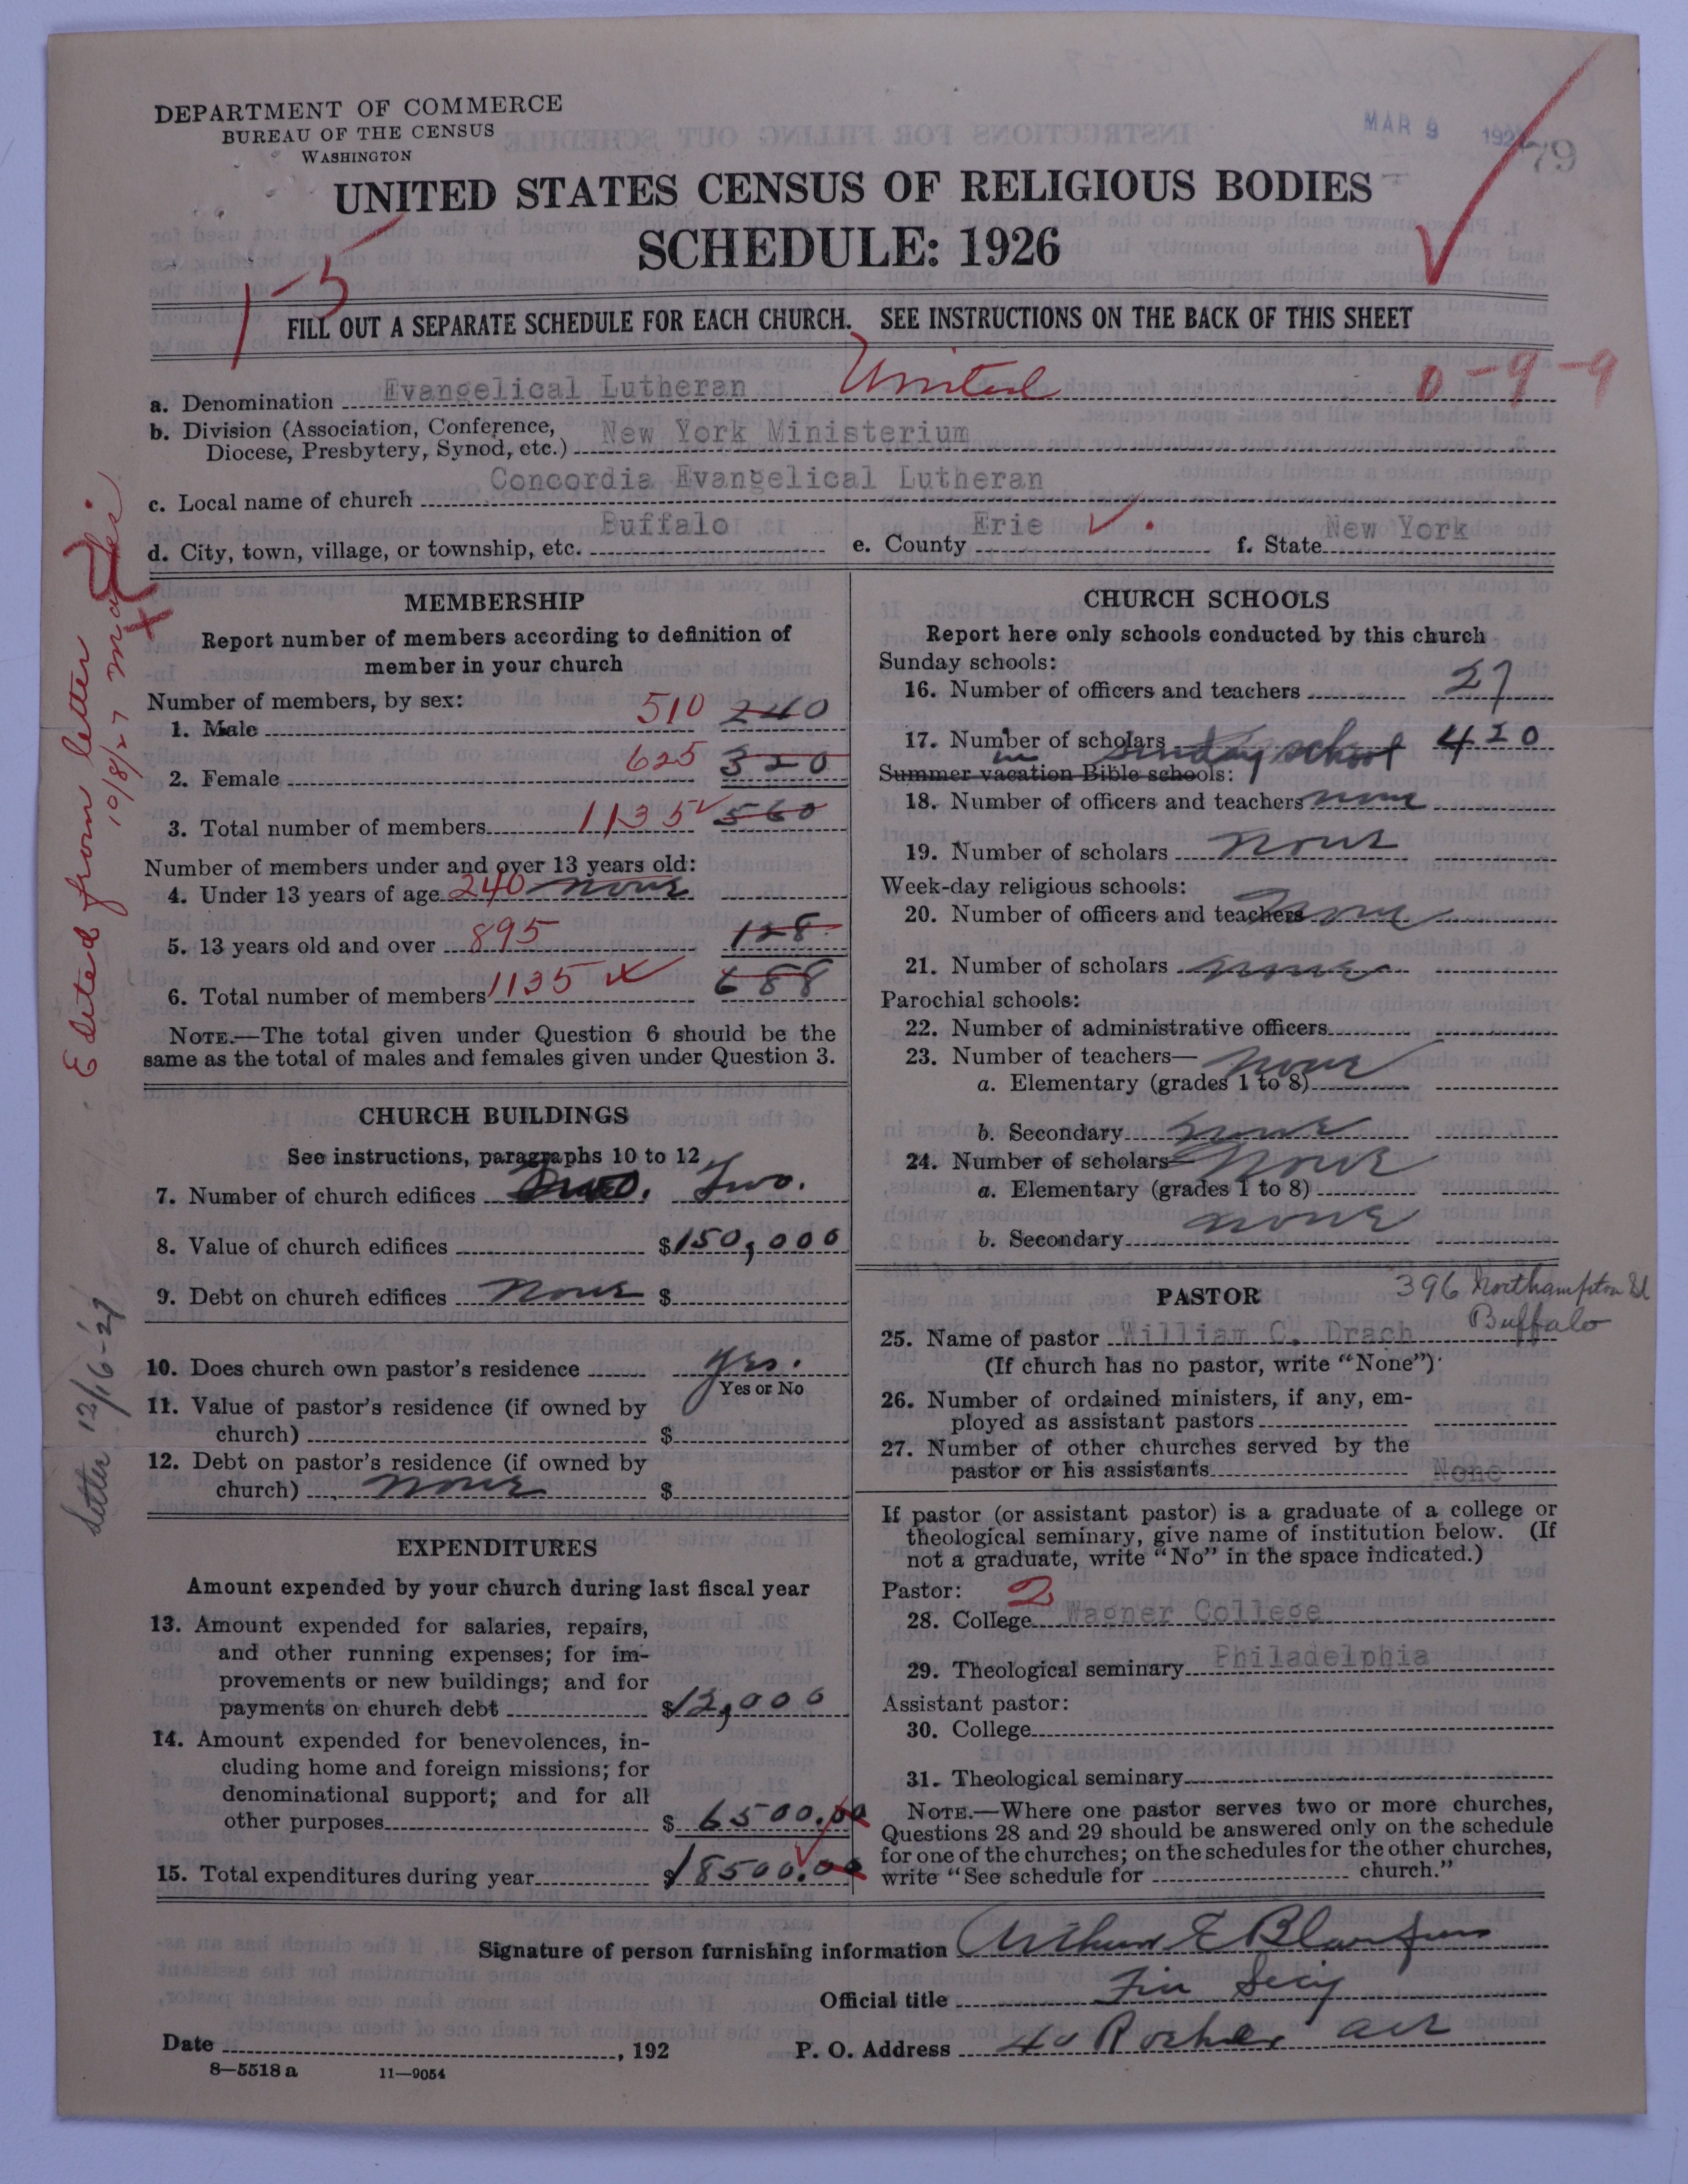 DEPARTMENT OF COMMERCE
BUREAU OF THE CENSUS
WASHINGTON
MAR 9 192
79
UNITED STATES CENSUS OF RELIGIOUS BODIES
SCHEDULE: 1926
1-5
FILL OUT A SEPARATE SCHEDULE FOR EACH CHURCH. SEE INSTRUCTIONS ON THE BACK OF THIS SHEET
a. Denomination Evangelical Lutheran United 0-9-9
b. Division (Association, Conference,
Diocese, Presbytery, Synod, etc.) New York Ministerium
c. Local name of church Concordia Evangelical Lutheran
d. City, town, village, or township, etc. Buffalo e. County Erie f. State New York
Edited from letter
10/8/27
letter 12/16-27
MEMBERSHIP
Report number of members according to definition of
member in your church
Number of members, by sex:
1. Male 510 240
2. Female 625 320
3. Total number of members 1135 560
Number of members under and over 13 years old:
4. Under 13 years of age 240 none
5. 13 years old and over 895 128
6. Total number of members 1135 688
NOTE.—The total given under Question 6 should be the
same as the total of males and females given under Question 3.
CHURCH BUILDINGS
See instructions, paragraphs 10 to 12
7. Number of church edifices Two.
8. Value of church edifices $150,000
9. Debt on church edifices none $
10. Does church own pastor's residence yes.
Yes or No
11. Value of pastor's residence (if owned by
church) $
12. Debt on pastor's residence (if owned by
church) none $
EXPENDITURES
Amount expended by your church during last fiscal year
13. Amount expended for salaries, repairs,
and other running expenses; for im-
provements or new buildings; and for
payments on church debt $12,000
14. Amount expended for benevolences, in-
cluding home and foreign missions; for
denominational support; and for all
other purposes $ 6500.00
15. Total expenditures during year $18500.00
CHURCH SCHOOLS
Report here only schools conducted by this church
Sunday schools:
16. Number of officers and teachers 27
17. Number of scholars 420
in Sunday school
Summer vacation Bible schools:
18. Number of officers and teachers none
19. Number of scholars none
Week-day religious schools:
20. Number of officers and teachers none
21. Number of scholars none
Parochial schools:
22. Number of administrative officers
23. Number of teachers—
a. Elementary (grades 1 to 8) none
b. Secondary none
24. Number of scholars—
a. Elementary (grades 1 to 8) none
b. Secondary none
PASTOR
396 Northampton St
Buffalo
25. Name of pastor William C. Drach
(If church has no pastor, write "None")
26. Number of ordained ministers, if any, em-
ployed as assistant pastors
27. Number of other churches served by the
pastor or his assistants None
If pastor (or assistant pastor) is a graduate of a college or
theological seminary, give name of institution below. (If
not a graduate, write "No" in the space indicated.)
Pastor: 2
28. College Wagner College
29. Theological seminary Philadelphia
Assistant pastor:
30. College
31. Theological seminary
NOTE.—Where one pastor serves two or more churches,
Questions 28 and 29 should be answered only on the schedule
for one of the churches; on the schedules for the other churches,
write "See schedule for church."
Signature of person furnishing information Arthur E
Official title Fin Secy
Date , 192 P. O. Address 40
8—5518 a 11—9054